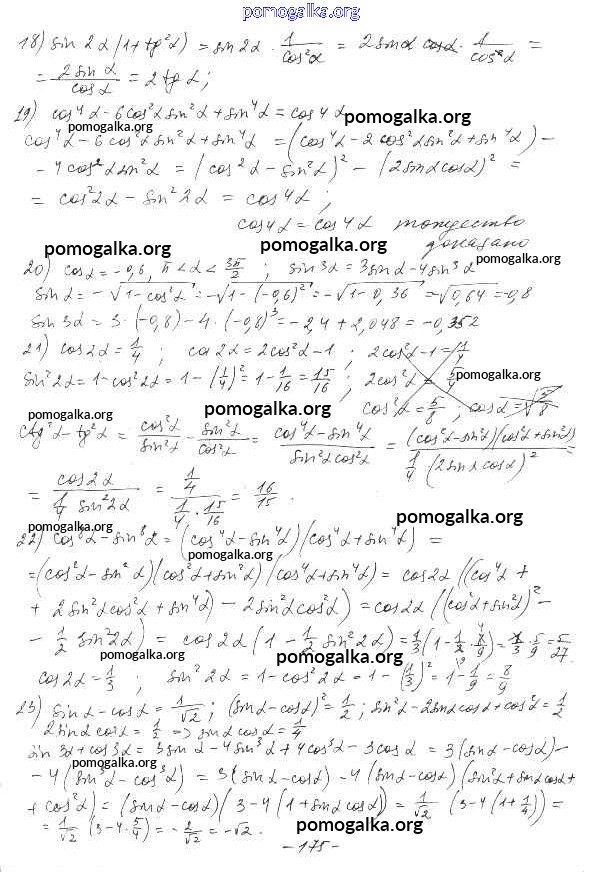 pomogalka.org
18) sin 2α (1+tg²α) = sin 2α · 1/cos²α = 2 sin α cos α · 1/cos²α =
= 2 sin α / cos α = 2 tg α;
19) cos⁴α - 6cos²α sin²α + sin⁴α = cos 4α
pomogalka.org pomogalka.org
cos⁴α - 6cos²α sin²α + sin⁴α = (cos⁴α - 2cos²α sin²α + sin⁴α) -
- 4cos²α sin²α = (cos²α - sin²α)² - (2 sin α cos α)² =
= cos²2α - sin²2α = cos 4α;
cos 4α = cos 4α тождество
доказано
pomogalka.org pomogalka.org pomogalka.org
20) cos α = -0,6, π < α < 3π/2; sin 3α = 3 sin α - 4 sin³α
sin α = -√(1-cos²α) = -√(1-(-0,6)²) = -√(1-0,36) = -√0,64 = -0,8
sin 3α = 3·(-0,8) - 4·(-0,8)³ = -2,4 + 2,048 = -0,352
21) cos 2α = 1/4; cos 2α = 2cos²α - 1; 2cos²α - 1 = 1/4
sin²2α = 1 - cos²2α = 1 - (1/4)² = 1 - 1/16 = 15/16; 2cos²α = 5/4
pomogalka.org
cos²α = 5/8; cos α = √5/8
pomogalka.org pomogalka.org
ctg²α - tg²α = cos²α/sin²α - sin²α/cos²α = (cos⁴α - sin⁴α)/(sin²α cos²α) = (cos²α - sin²α)(cos²α + sin²α) / 1/4 (2 sin α cos α)² =
= cos 2α / 1/4 sin²2α = 1/4 / 1/4 · 15/16 = 16/15.
pomogalka.org pomogalka.org
22) cos⁸α - sin⁸α = (cos⁴α - sin⁴α)(cos⁴α + sin⁴α) =
pomogalka.org
= (cos²α - sin²α)(cos²α + sin²α)(cos⁴α + sin⁴α) = cos 2α ((cos⁴α +
+ 2 sin²α cos²α + sin⁴α) - 2 sin²α cos²α) = cos 2α ((cos²α + sin²α)² -
- 1/2 sin²2α) = cos 2α (1 - 1/2 sin²2α) = 1/3 (1 - 1/2 · 8/9) = 1/3 · 5/9 = 5/27.
pomogalka.org pomogalka.org
cos 2α = 1/3; sin²2α = 1 - cos²2α = 1 - (1/3)² = 1 - 1/9 = 8/9
23) sin α - cos α = 1/√2; (sin α - cos α)² = 1/2; sin²α - 2 sin α cos α + cos²α = 1/2
2 sin α cos α = 1/2 => sin α cos α = 1/4
sin 3α + cos 3α = 3 sin α - 4 sin³α + 4cos³α - 3cos α = 3(sin α - cos α) -
pomogalka.org
- 4(sin³α - cos³α) = 3(sin α - cos α) - 4(sin α - cos α)(sin²α + sin α cos α +
+ cos²α) = (sin α - cos α)(3 - 4(1 + sin α cos α)) = 1/√2 (3 - 4(1 + 1/4)) =
= 1/√2 (3 - 4 · 5/4) = -2/√2 = -√2.
pomogalka.org
- 175 -